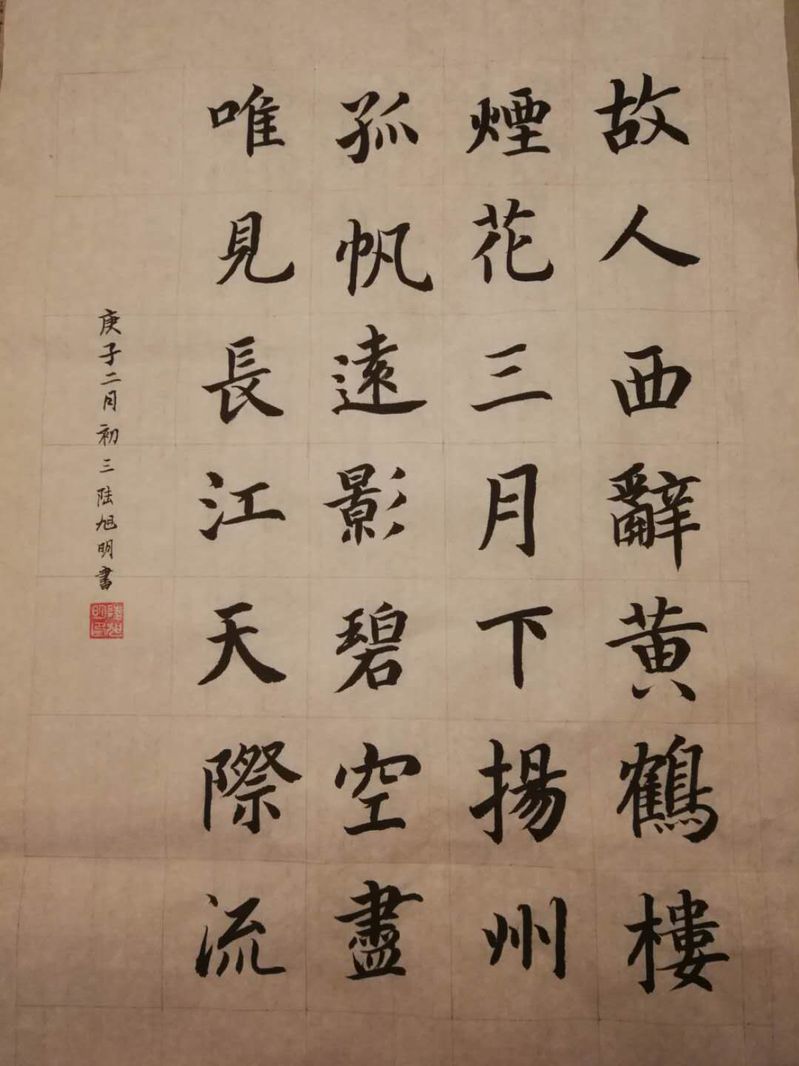 故人西辭黃鶴樓
煙花三月下揚州
孤帆遠影碧空盡
唯見長江天際流
庚子二月初三陆旭明書